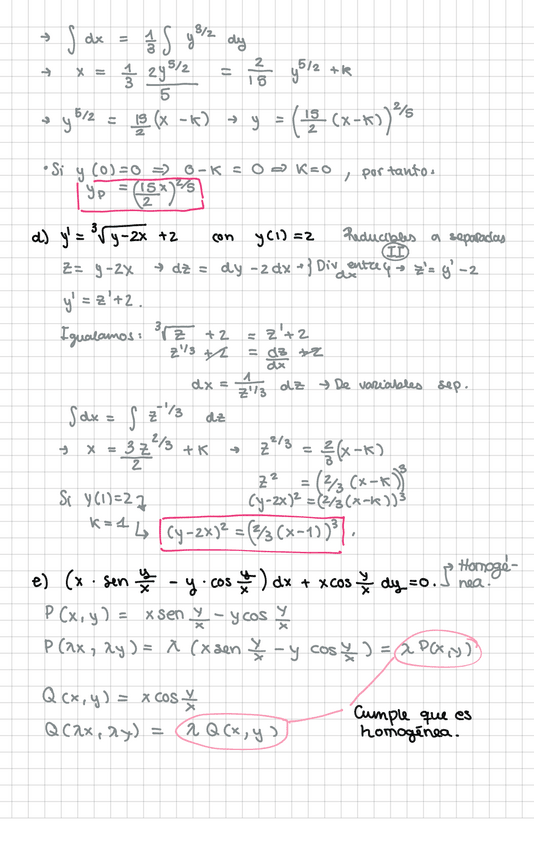 → ∫ dx = 1/3 ∫ y^3/2 dy
→ x = 1/3 2y^5/2 / 5 = 2/15 y^5/2 + K
→ y^5/2 = 15/2 (x - K) → y = (15/2 (x-K))^2/5
· Si y(0)=0 => 0-K = 0 => K=0, por tanto.
yp = (15x/2)^2/5
d) y' = ³√y-2x +2 con y(1)=2 Reducibles a separadas II
z = y-2x → dz = dy - 2dx → } Div entre dx → z' = y' - 2
y' = z'+2.
Igualamos: ³√z + 2 = z' + 2
z^1/3 + 2 = dz/dx + 2
dx = 1/z^1/3 dz → De variables sep.
∫dx = ∫ z^-1/3 dz
→ x = 3z^2/3 / 2 + K → z^2/3 = 2/3 (x-K)
z² = (2/3 (x-K))³
Si y(1)=2 (y-2x)² = (2/3 (x-K))³
K=1 ↳ (y-2x)² = (2/3 (x-1))³.
e) (x · sen y/x - y · cos y/x) dx + x cos y/x dy = 0. Homogénea.
P(x,y) = x sen y/x - y cos y/x
P(λx, λy) = λ (x sen y/x - y cos y/x) = λ P(x,y)
Q(x,y) = x cos y/x
Q(λx, λy) = λ Q(x,y)
Cumple que es
homogénea.